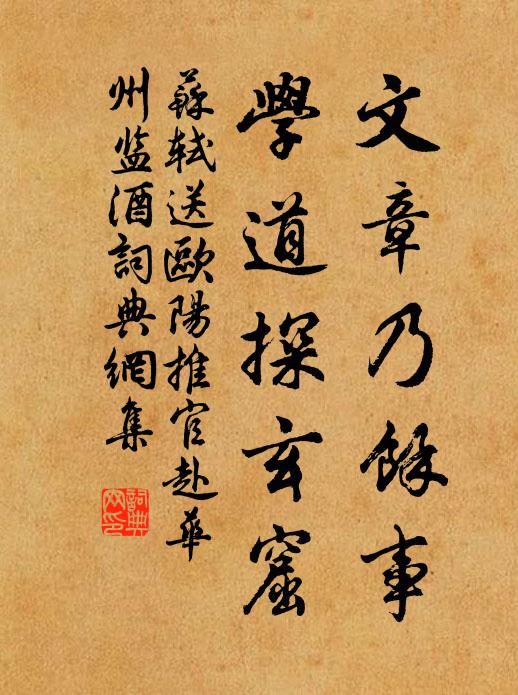 文章乃餘事
學道探玄窟
蘇軾送歐陽推官赴華
州监酒詞典網集
詞典
网印